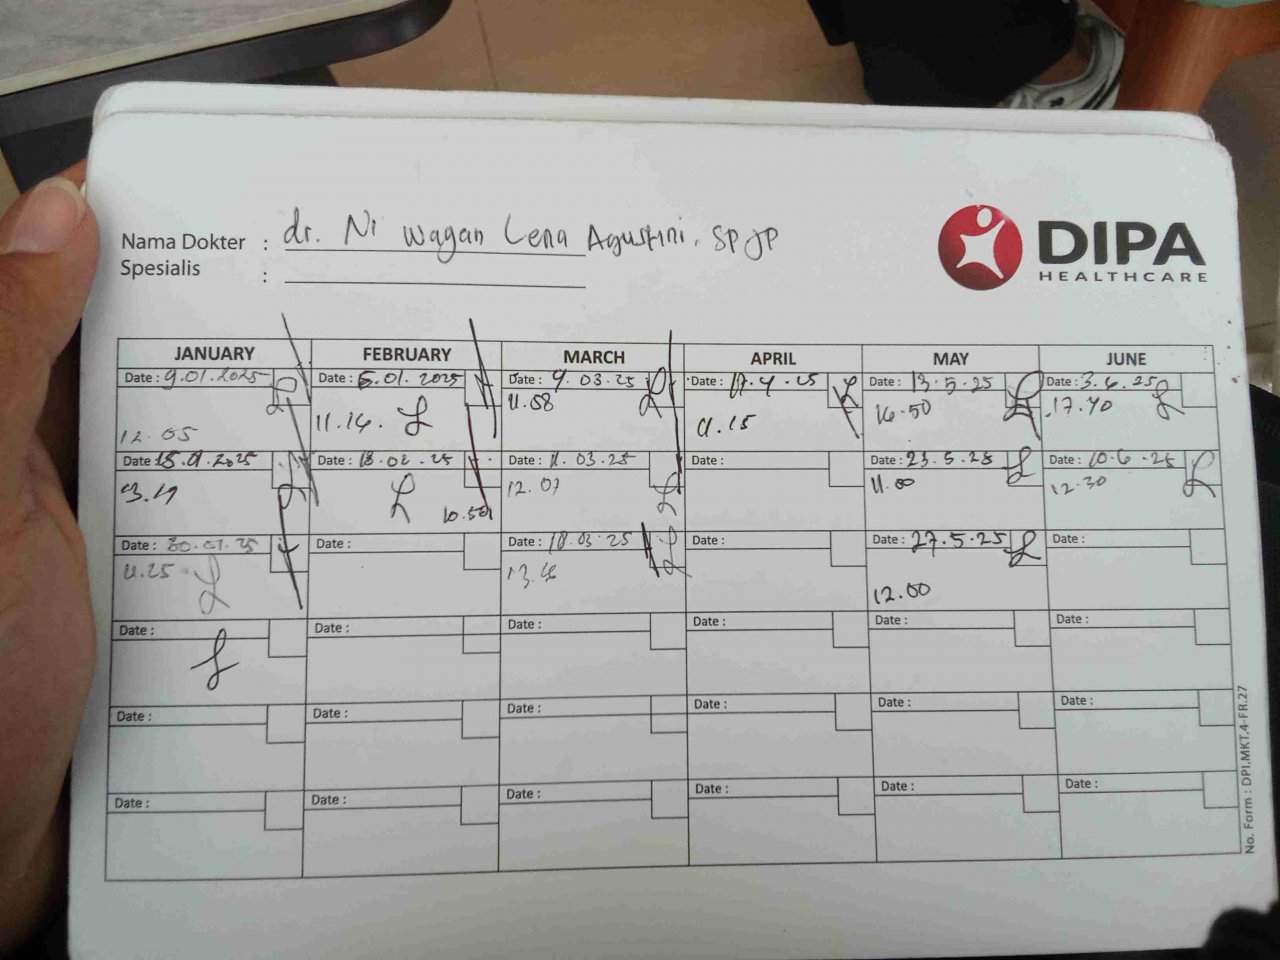 Nama Dokter : dr. Ni Wayan Lena Agustini, SP JP
Spesialis :
DIPA
HEALTHCARE
JANUARY FEBRUARY MARCH APRIL MAY JUNE
Date : 9.01.2025 Date : 6.01.2025 Date : 9.03.25 Date : 17.4.25 Date : 13.5.25 Date : 3.6.25
12.05 11.14. 11.58 11.15 16.50 17.40
Date 15.01.2025 Date : 18.02.25 Date : 11.03.25 Date : Date : 23.5.25 Date : 10.6.25
10.50 12.07 11.00 12.30
Date : 30.01.25 Date : Date : 18.03.25 Date : Date : 27.5.25 Date :
11.25 12.00
Date : Date : Date : Date : Date : Date :
Date : Date : Date : Date : Date : Date :
Date : Date : Date : Date : Date : Date :
No. Form : DPI.MKT.4-FR.27